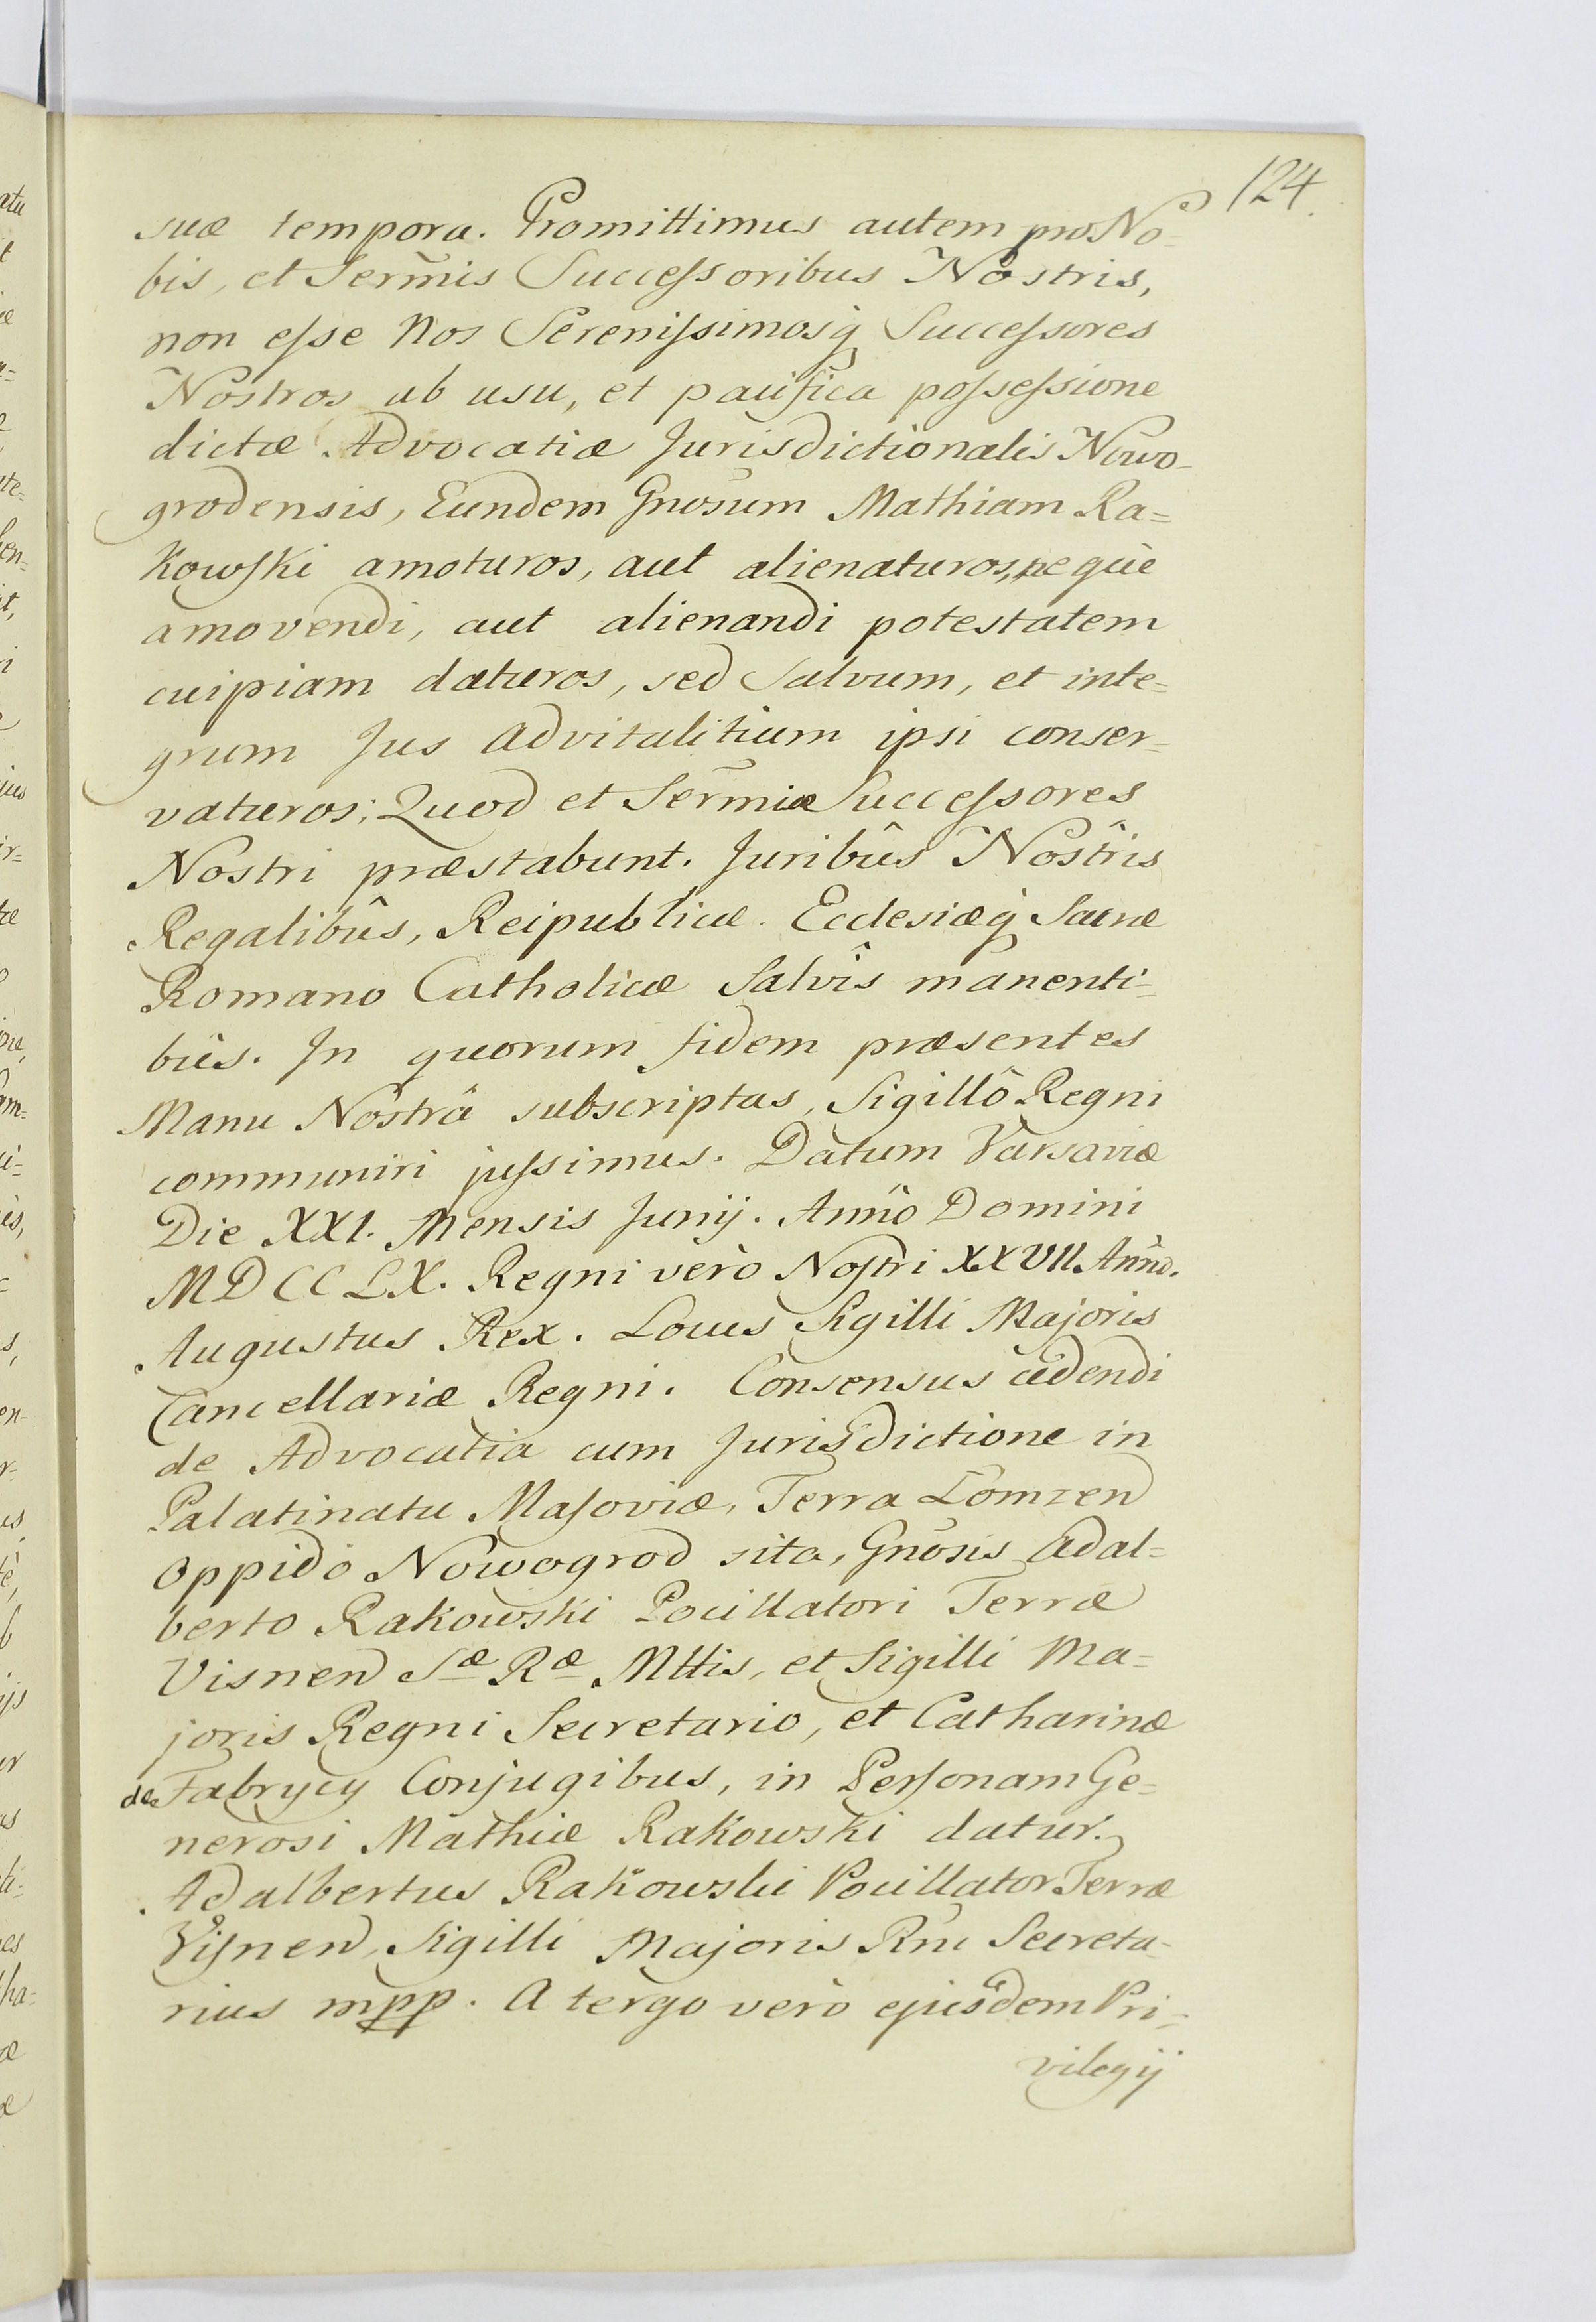 124.
suæ tempora. Promittimus autem pro No=
bis, et Serm̃is Succeſsoribus Nostris,
non eſse Nos Sereniſsimosq̃ Succeſsores
Nostros ab usu, et pacifica poſseſsione
dictæ Advocatiæ Jurisdictionalis Nowo-
grodensis, Eundem Gnosum Mathiam Ra=
kowſki amoturos, aut alienaturos, neque
amovendi, aut alienandi potestatem
cuipiam daturos, sed Salvum, et inte=
grum Jus Advitalitium ipsi conser=
vaturos; Quod et Serm̃i Succeſsores
Nostri præstabunt. Juribûs Nostrîs
Regalibûs, Reipublicæ. Ecclesiæq̃ Sacræ
Romano Catholicæ Salvîs manenti=
bûs. In quorum fidem præsentes
Manu Nostrâ subscriptas, Sigillô Regni
communiri juſsimus. Datum Varsaviæ
Die XXI. Mensis Junij. Annô Domini
MDCCLX. Regni verò Noſtri XXVII. Annô.
Augustus Rex. Locus Sigilli Majoris
Cancellariæ Regni. Consensus cedendi
de Advocatia cum Jurisdictione in
Palatinatu Maſoviæ, Terra Łomzen
Oppido Nowogrod sita, Gnosis Adal=
berto Rakowski Pocillatori Terræ
Visnen Sæ Ræ Mttis, et Sigilli Ma=
joris Regni Secretario, et Catharinæ
de Fabrycy Conjugibus, in Perſonam Ge=
nerosi Mathiæ Rakowski datur.
Adalbertus Rakowski Pocillator Terræ
Viſnen, Sigilli Majoris Rni Secreta-
rius mpp. A tergo verò ejusdem Pri=
vilegij